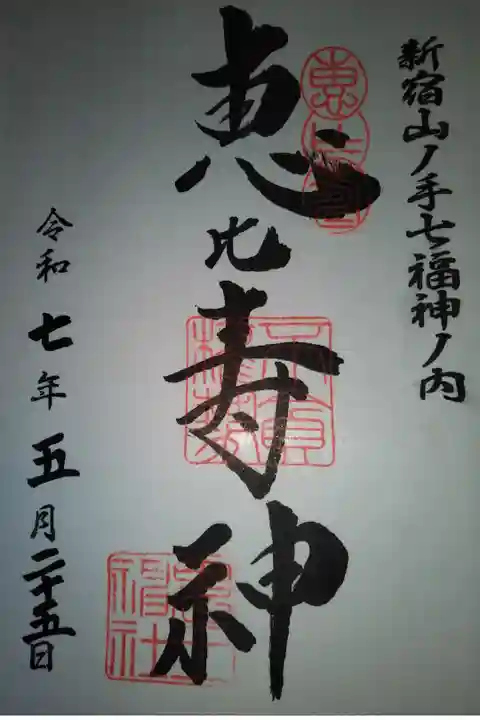 新宿山ノ手七福神ノ内
恵比寿神
令和七年五月二十五日
恵比寿